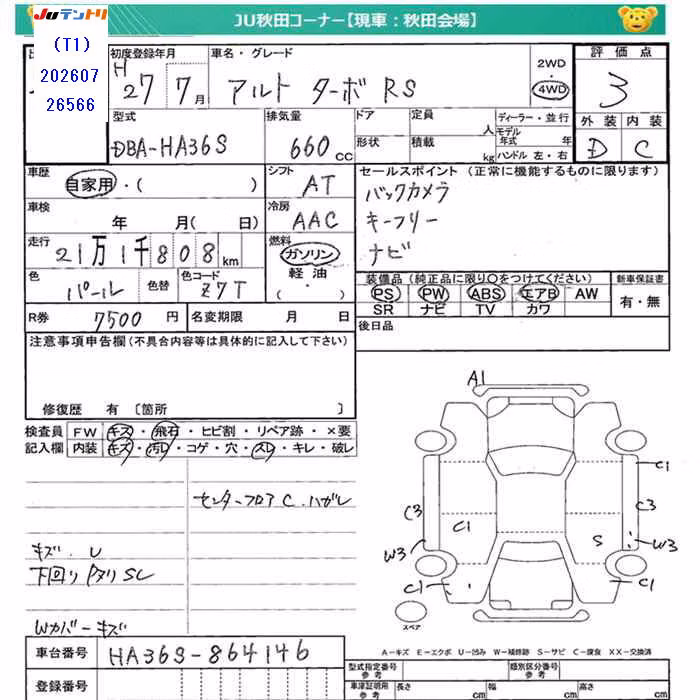 JUテントリ
JU秋田コーナー【現車：秋田会場】
(T1)
202607
26566
初度登録年月 車名・グレード 2WD 評価点
H 27 7月 アルト ターボRS 4WD 3
型式 排気量 ドア 定員 人 ディーラー・並行 外装 内装
DBA-HA36S 660cc 形状 積載 kg モデル年式 年 ハンドル 左・右 D C
車歴 シフト セールスポイント (正常に機能するものに限ります)
自家用・( ) AT バックカメラ
車検 年 月( 日) 冷房 AAC キーフリー
走行 21万1千808km 燃料 ガソリン ナビ
軽油・( )
色 パール 色替 色コード Z7T
装備品 (純正品に限り○をつけてください) 新車保証書
PS PW ABS エアB AW 有・無
SR ナビ TV カワ
R券 7500円 名変期限 月 日 後日品
注意事項申告欄(不具合内容等は具体的に記入して下さい)
修復歴 有 〔箇所 〕
検査員 FW キズ・飛石・ヒビ割・リペア跡・×要
記入欄 内装 キズ・汚レ・コゲ・穴・スレ・キレ・破レ
センターフロア C.ハガレ
キズ.U
下回り/タリ SC
Wカバーキズ
A1
C1
C3 C1 C3
W3 S W3
C1 C1
スペア
A-キズ E-エクボ U-凹み W-補修跡 S-サビ C-腐食 XX-交換済
車台番号 HA36S-864146
登録番号
型式指定番号 参考 類別区分番号 参考
車庫証明用 参考 長さ cm 幅 cm 高さ cm